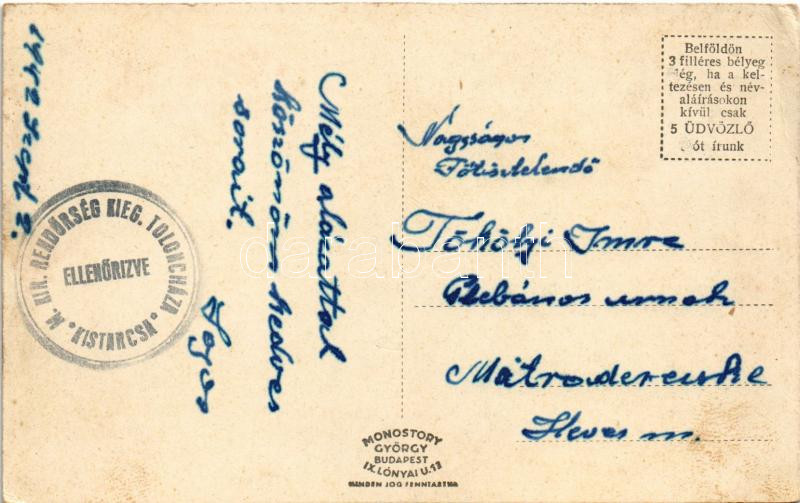 Belföldön
3 filléres bélyeg
elég, ha a kel-
tezésen és név-
aláírásokon
kívül csak
5 ÜDVÖZLŐ
szót írunk
Nagyságos
Főtisztelendő
Tökölyi Imre
Plébános urnak
Mátraderecske
Heves m.
Mély alázattal
köszönöm kedves
sorait.
M. KIR. RENDŐRSÉG KIEG. TOLONCHÁZA
ELLENŐRIZVE
KISTARCSA
MONOSTORY
GYÖRGY
BUDAPEST
IX. LÓNYAI U. 13
MINDEN JOG FENNTARTVA
darabanth.com